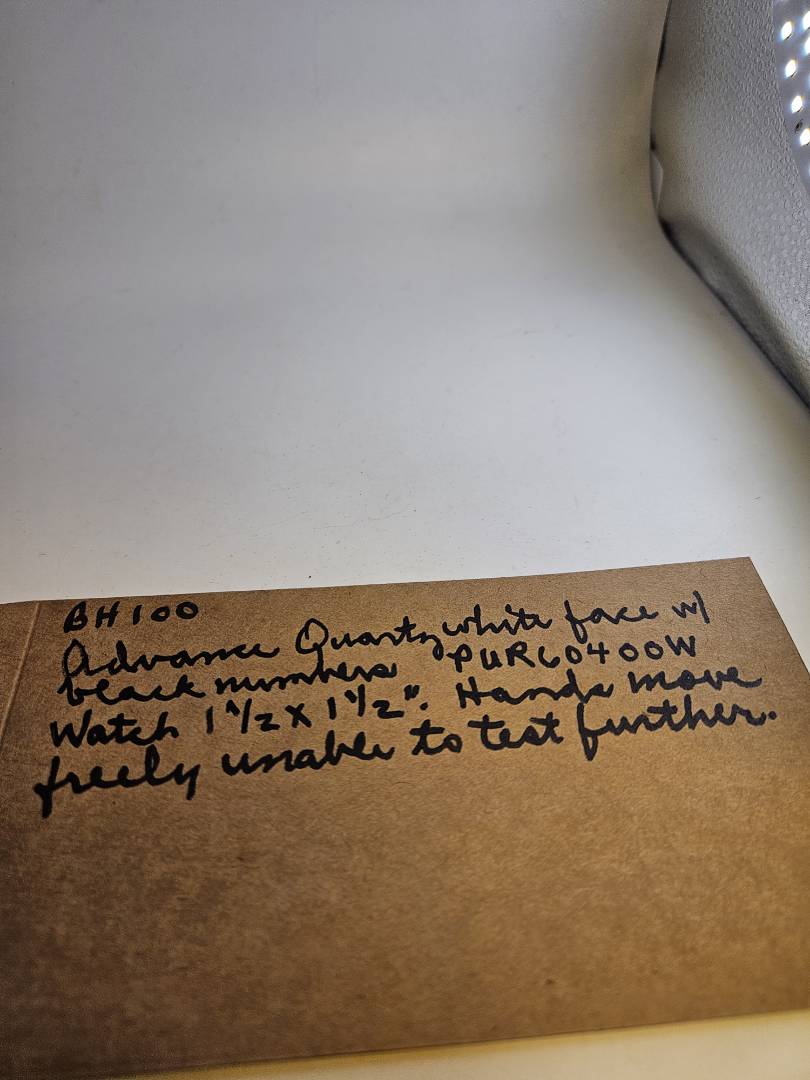 BH100
Advance Quartz white face w/
black numbers PUR60400W
Watch 1 1/2 X 1 1/2". Hands move
freely unable to test further.